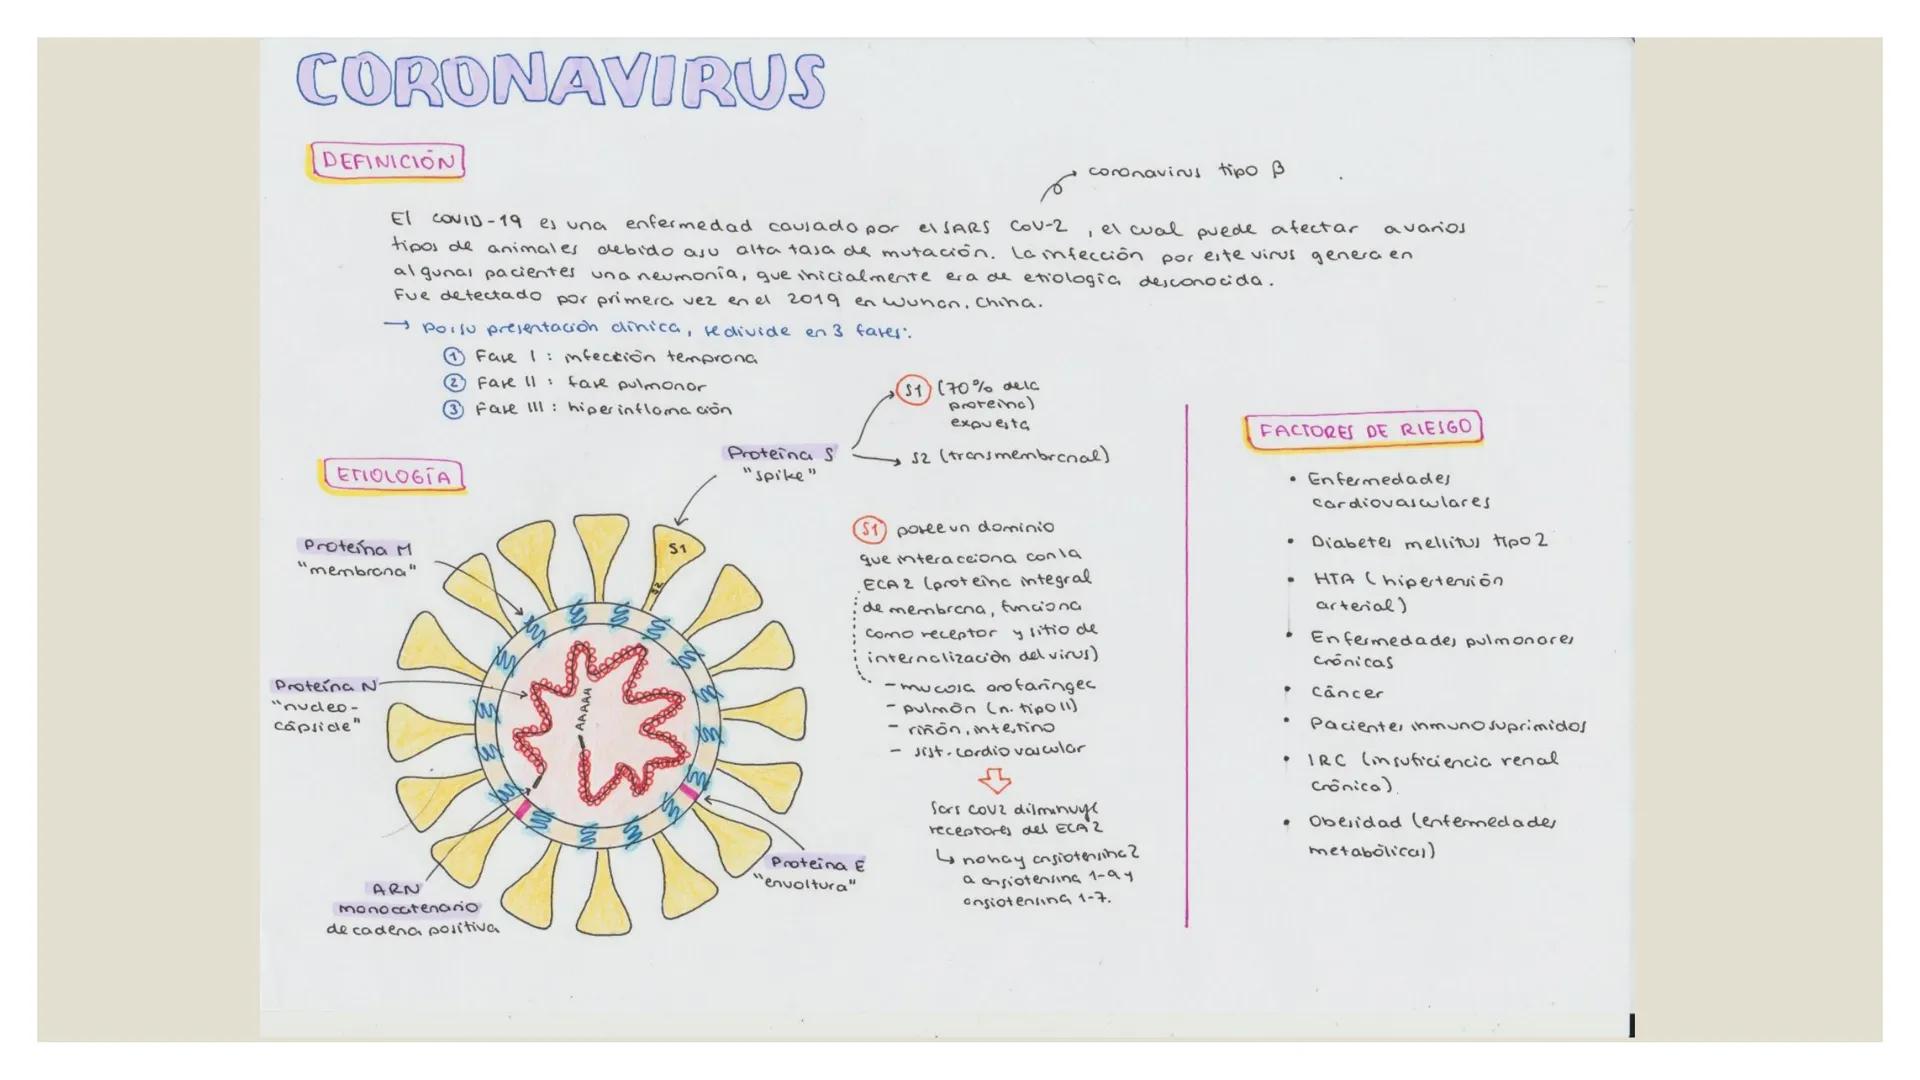 CORONAVIRUS
DEFINICIÓN
coronavirus tipo β
El COVID-19 es una enfermedad causado por el SARS CoV-2, el cual puede afectar a varios
tipos de animales debido a su alta tasa de mutación. La infección por este virus genera en
algunas pacientes una neumonía, que inicialmente era de etiología desconocida.
Fue detectado por primera vez en el 2019 en Wuhan, China.
→ Por su presentación clínica, se divide en 3 fases:
1 Fase I : infección temprana
2 Fase II : fase pulmonar
3 Fase III : hiperinflamación
ETIOLOGÍA
Proteína S
"spike"
S1 (70% de la
proteína)
expuesta
S2 (transmembranal)
Proteína M
"membrana"
S1
S2
Proteína N
"nucleo-
cápside"
AAAAA
ARN
monocatenario
de cadena positiva
Proteína E
"envoltura"
S1 posee un dominio
que interacciona con la
ECA2 (proteína integral
de membrana, funciona
como receptor y sitio de
internalización del virus)
- mucosa orofaríngea
- pulmón (n. tipo II)
- riñón, intestino
- sist. cardiovascular
Sars COV2 disminuye
receptores del ECA2
↳ no hay angiotensina 2
a angiotensina 1-9 y
angiotensina 1-7.
FACTORES DE RIESGO
• Enfermedades
cardiovasculares
• Diabetes mellitus tipo 2
• HTA (hipertensión
arterial)
• Enfermedades pulmonares
crónicas
• Cáncer
• Pacientes inmunosuprimidos
• IRC (insuficiencia renal
crónica).
• Obesidad (enfermedades
metabólicas)